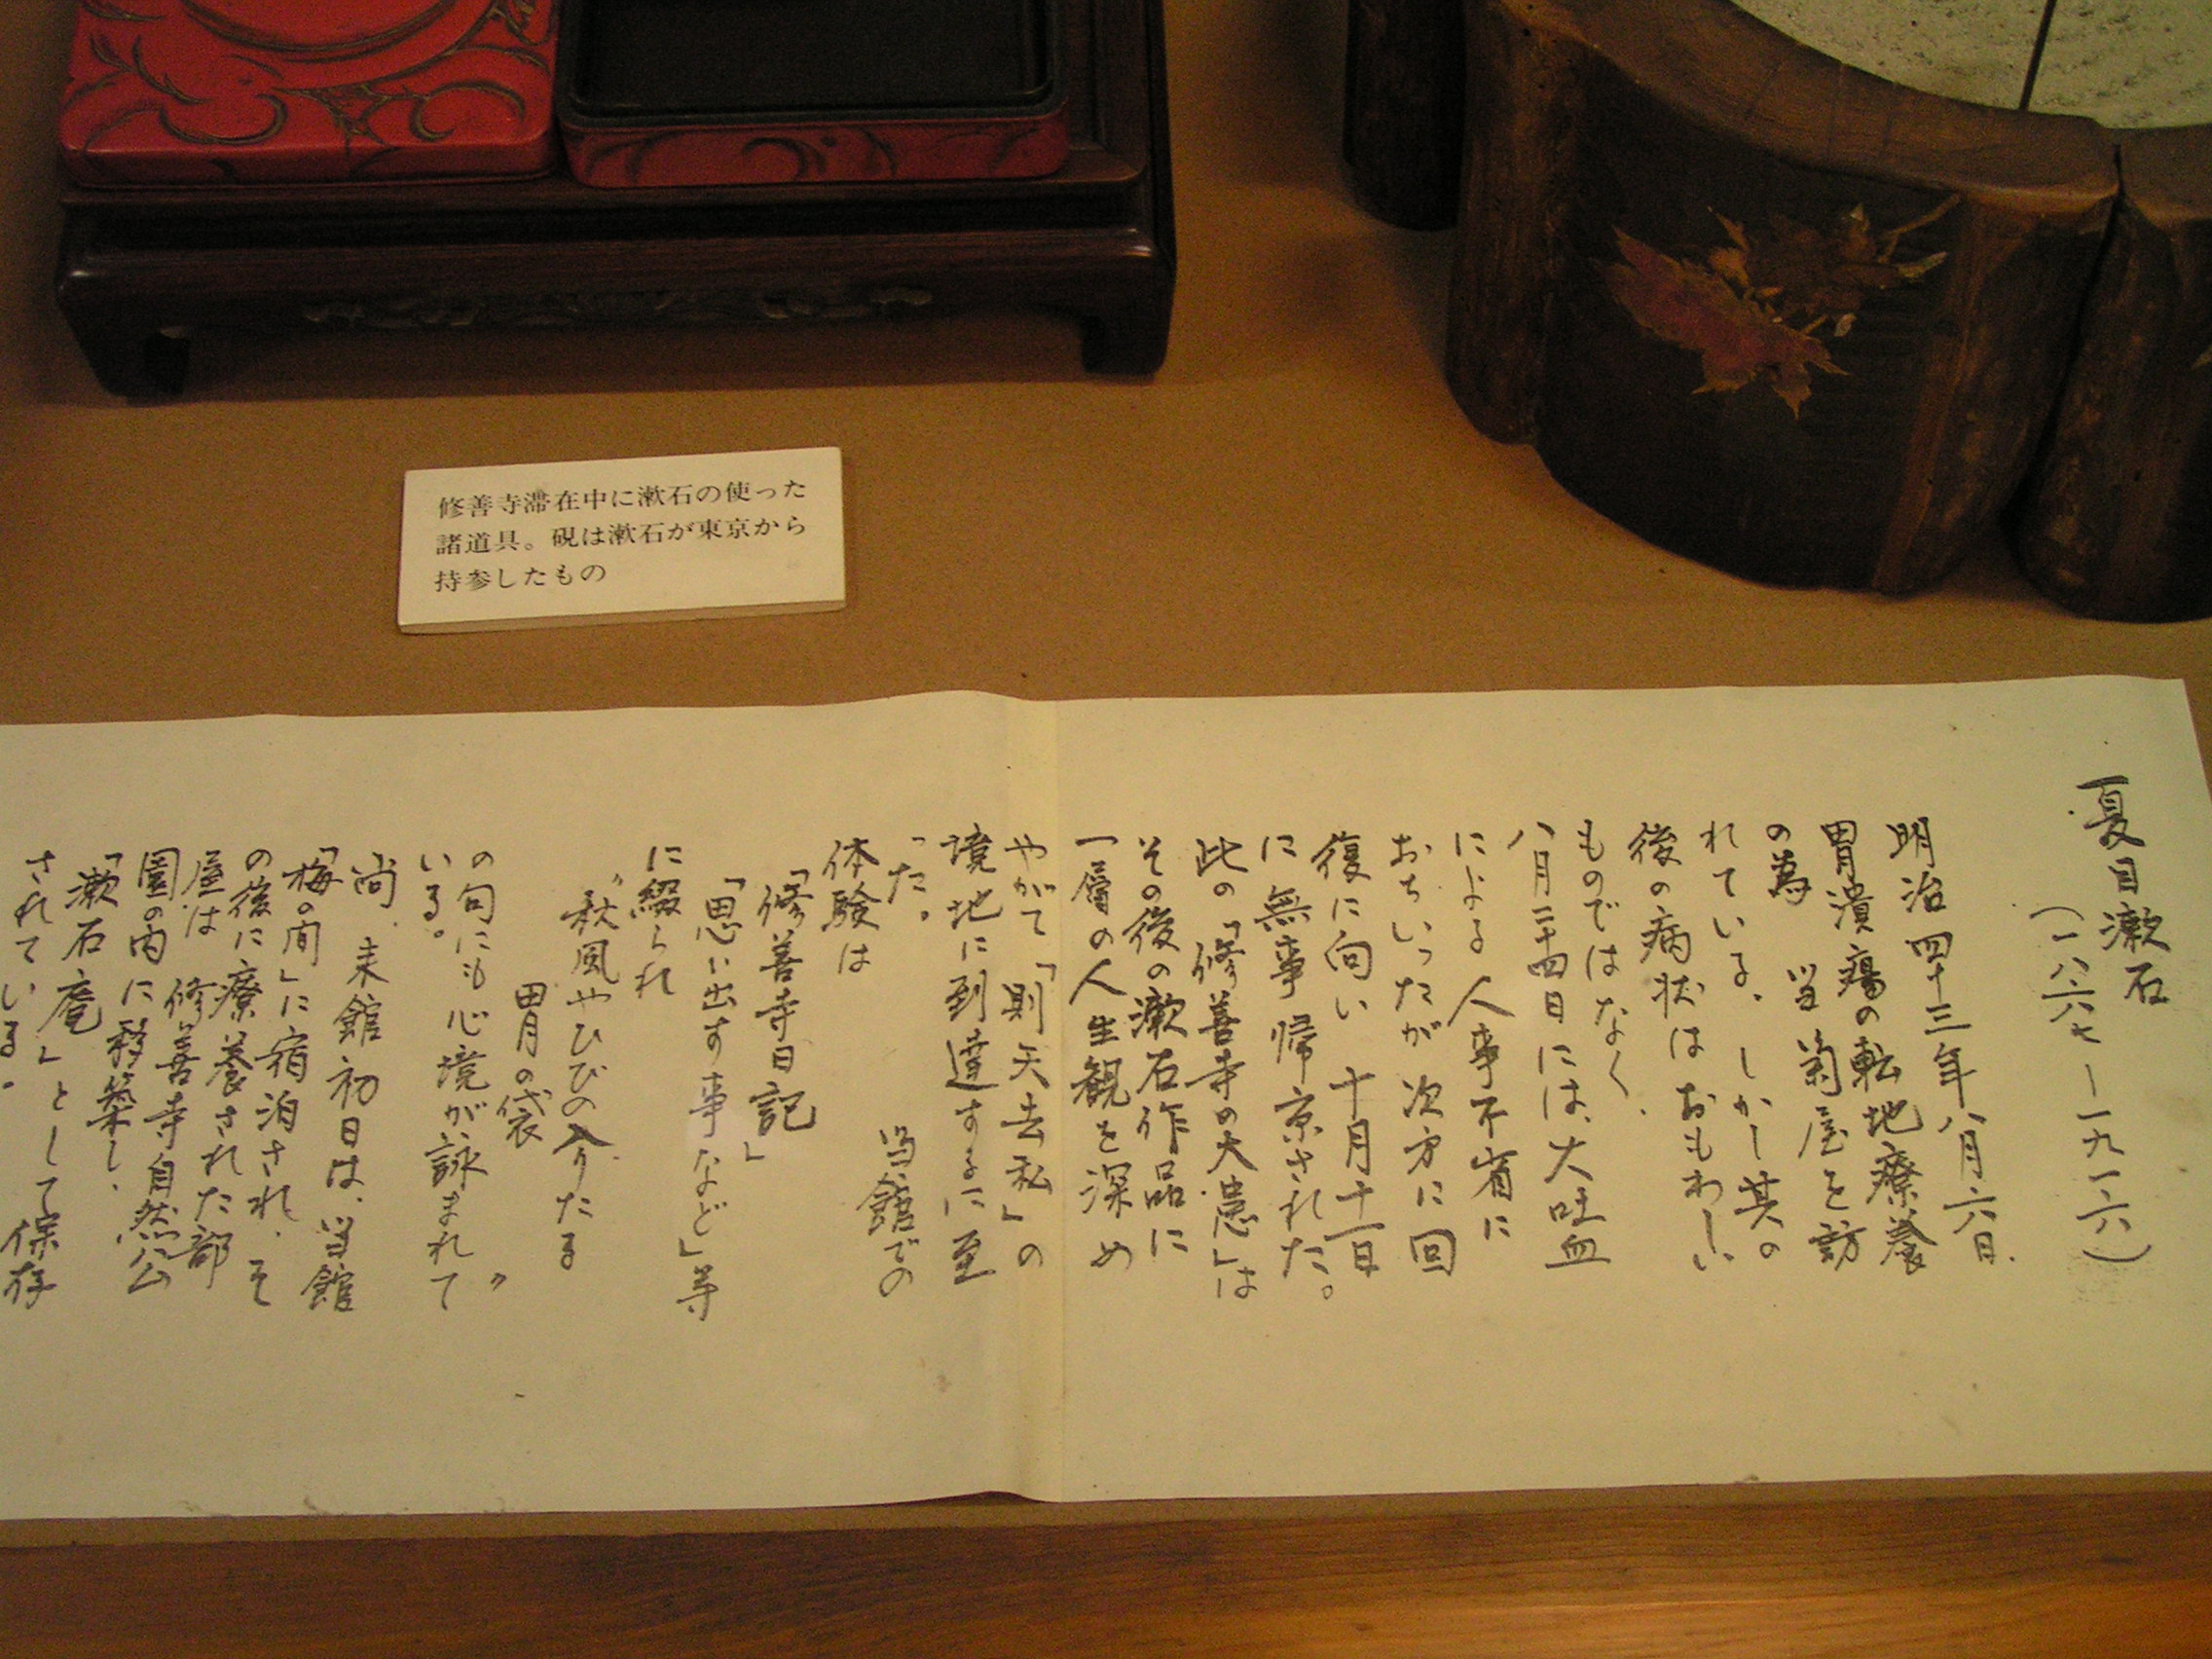 修善寺滞在中に漱石の使った
諸道具。硯は漱石が東京から
持参したもの
夏目漱石
(一八六七ー一九一六)
明治四十三年八月六日、
胃潰瘍の転地療養
の為 当菊屋を訪
れている。しかし其の
後の病状はおもわしい
ものではなく、
八月二十四日には、大吐血
による人事不省に
おちいったが 次方に回
復に向い 十月十一日
に無事帰京された。
此の「修善寺の大患」は
その後の漱石作品に
一層の人生観を深め
やがて「則天去私」の
境地に到達するに至
った。 当館での
体験は
「修善寺日記」
「思い出す事など」等
に綴られ
"秋風やひびの入りたる
胃の袋"
の句にも心境が詠まれて
いる。
尚、来館初日は、当館
「梅の間」に宿泊され、そ
の後に療養された部
屋は 修善寺自然公
園の内に移築し、
「漱石庵」として保存
されている。